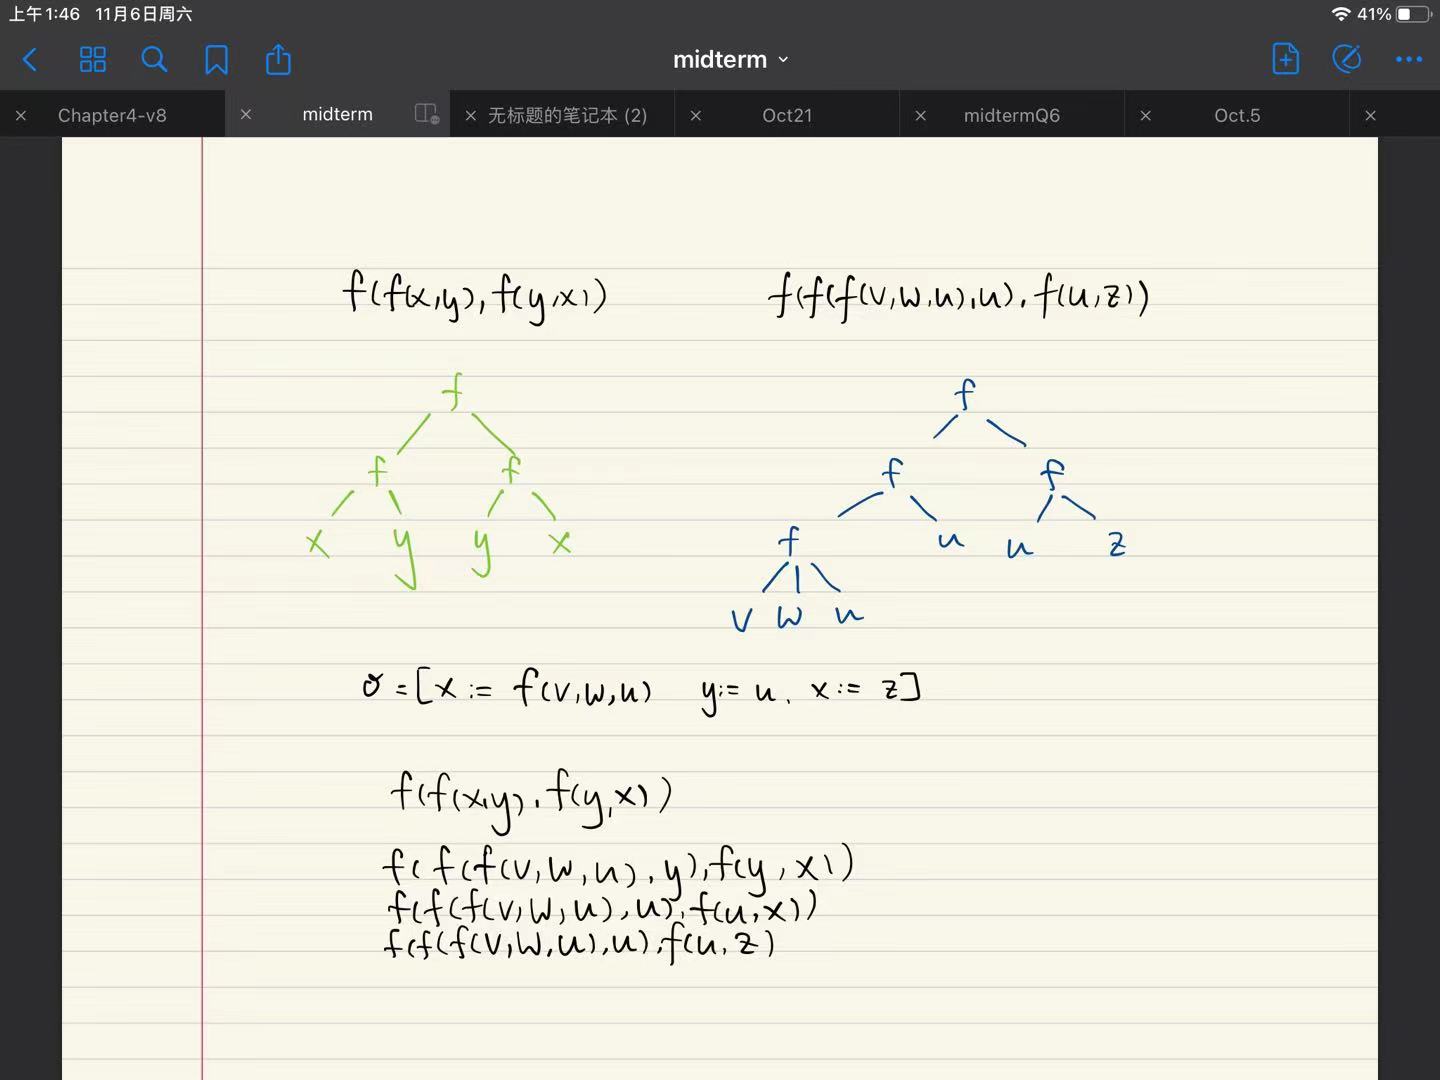 上午1:46 11月6日周六 41%
midterm
Chapter4-v8 midterm 无标题的笔记本 (2) Oct21 midtermQ6 Oct.5
f(f(x,y),f(y,x)) f(f(f(v,w,u),u),f(u,z))
f f
f f f f
x y y x f u u z
v w u
σ=[x:= f(v,w,u) y:= u, x:= z]
f(f(x,y),f(y,x))
f(f(f(v,w,u),y),f(y,x))
f(f(f(v,w,u),u),f(u,x))
f(f(f(v,w,u),u),f(u,z)